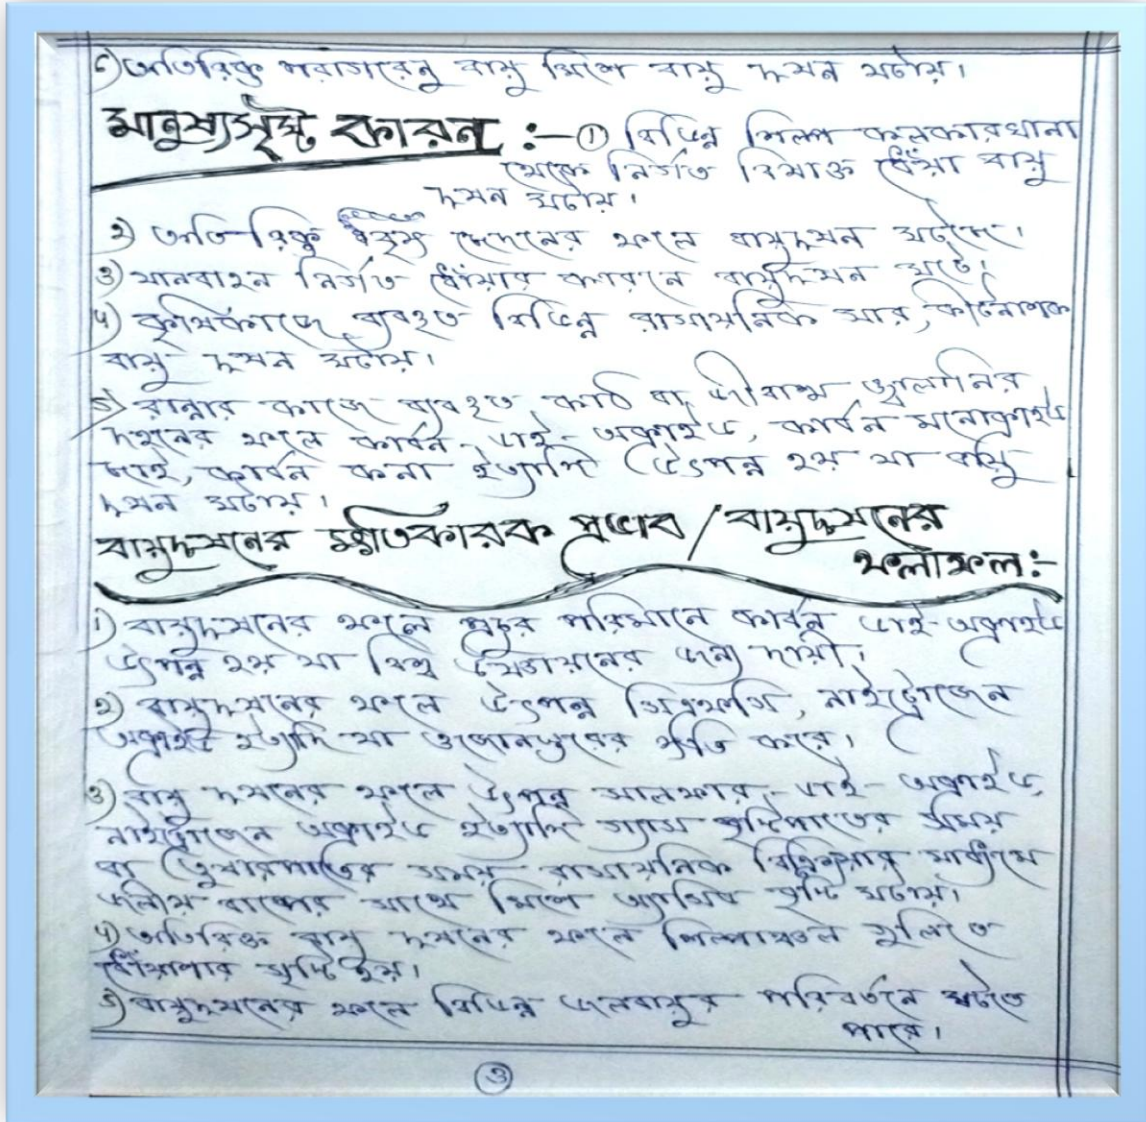 ৫) অতিরিক্ত পরাগরেনু বায়ু মিশে বায়ু দূষন ঘটায়।
মানুষ্যসৃষ্ট কারন :- ① বিভিন্ন শিল্প কলকারখানা
থেকে নির্গত বিষাক্ত ধোঁয়া বায়ু
দূষন ঘটায়।
২) অতিরিক্ত বৃক্ষ ছেদনের ফলে বায়ুদূষন ঘটছে।
৩) যানবাহন নির্গত ধোঁয়ার কারনে বায়ুদূষন ঘটে।
৪) কৃষিকাজে ব্যবহৃত বিভিন্ন রাসায়নিক সার, কীটনাশক
বায়ু দূষন ঘটায়।
৫) রান্নার কাজে ব্যবহৃত কাঠ বা জীবাশ্ম জ্বালানির
দহনের ফলে কার্বন-ডাই-অক্সাইড, কার্বন মনোক্সাইড
ছাই, কার্বন কনা ইত্যাদি উৎপন্ন হয় যা বায়ু
দূষন ঘটায়।
বায়ুদূষনের ক্ষতিকারক প্রভাব / বায়ুদূষনের
ফলাফল:-
১) বায়ুদূষনের ফলে প্রচুর পরিমানে কার্বন ডাই-অক্সাইড
উৎপন্ন হয় যা বিশ্ব উষ্ণায়নের জন্য দায়ী।
২) বায়ুদূষনের ফলে উৎপন্ন সিএফসি, নাইট্রোজেন
অক্সাইড ইত্যাদি যা ওজোনস্তরের ক্ষতি করে।
৩) বায়ু দূষনের ফলে উৎপন্ন সালফার-ডাই-অক্সাইড,
নাইট্রোজেন অক্সাইড ইত্যাদি গ্যাস বৃষ্টিপাতের সময়
বা তুষারপাতের সময় রাসায়নিক বিক্রিয়ার মাধ্যমে
জলীয় বাষ্পের সাথে মিশে অ্যাসিড বৃষ্টি ঘটায়।
৪) অতিরিক্ত বায়ু দূষনের ফলে শিল্পাঞ্চল গুলিতে
ধোঁয়াশার সৃষ্টি হয়।
৫) বায়ুদূষনের ফলে বিভিন্ন জলবায়ুর পরিবর্তন ঘটতে
পারে।
৩